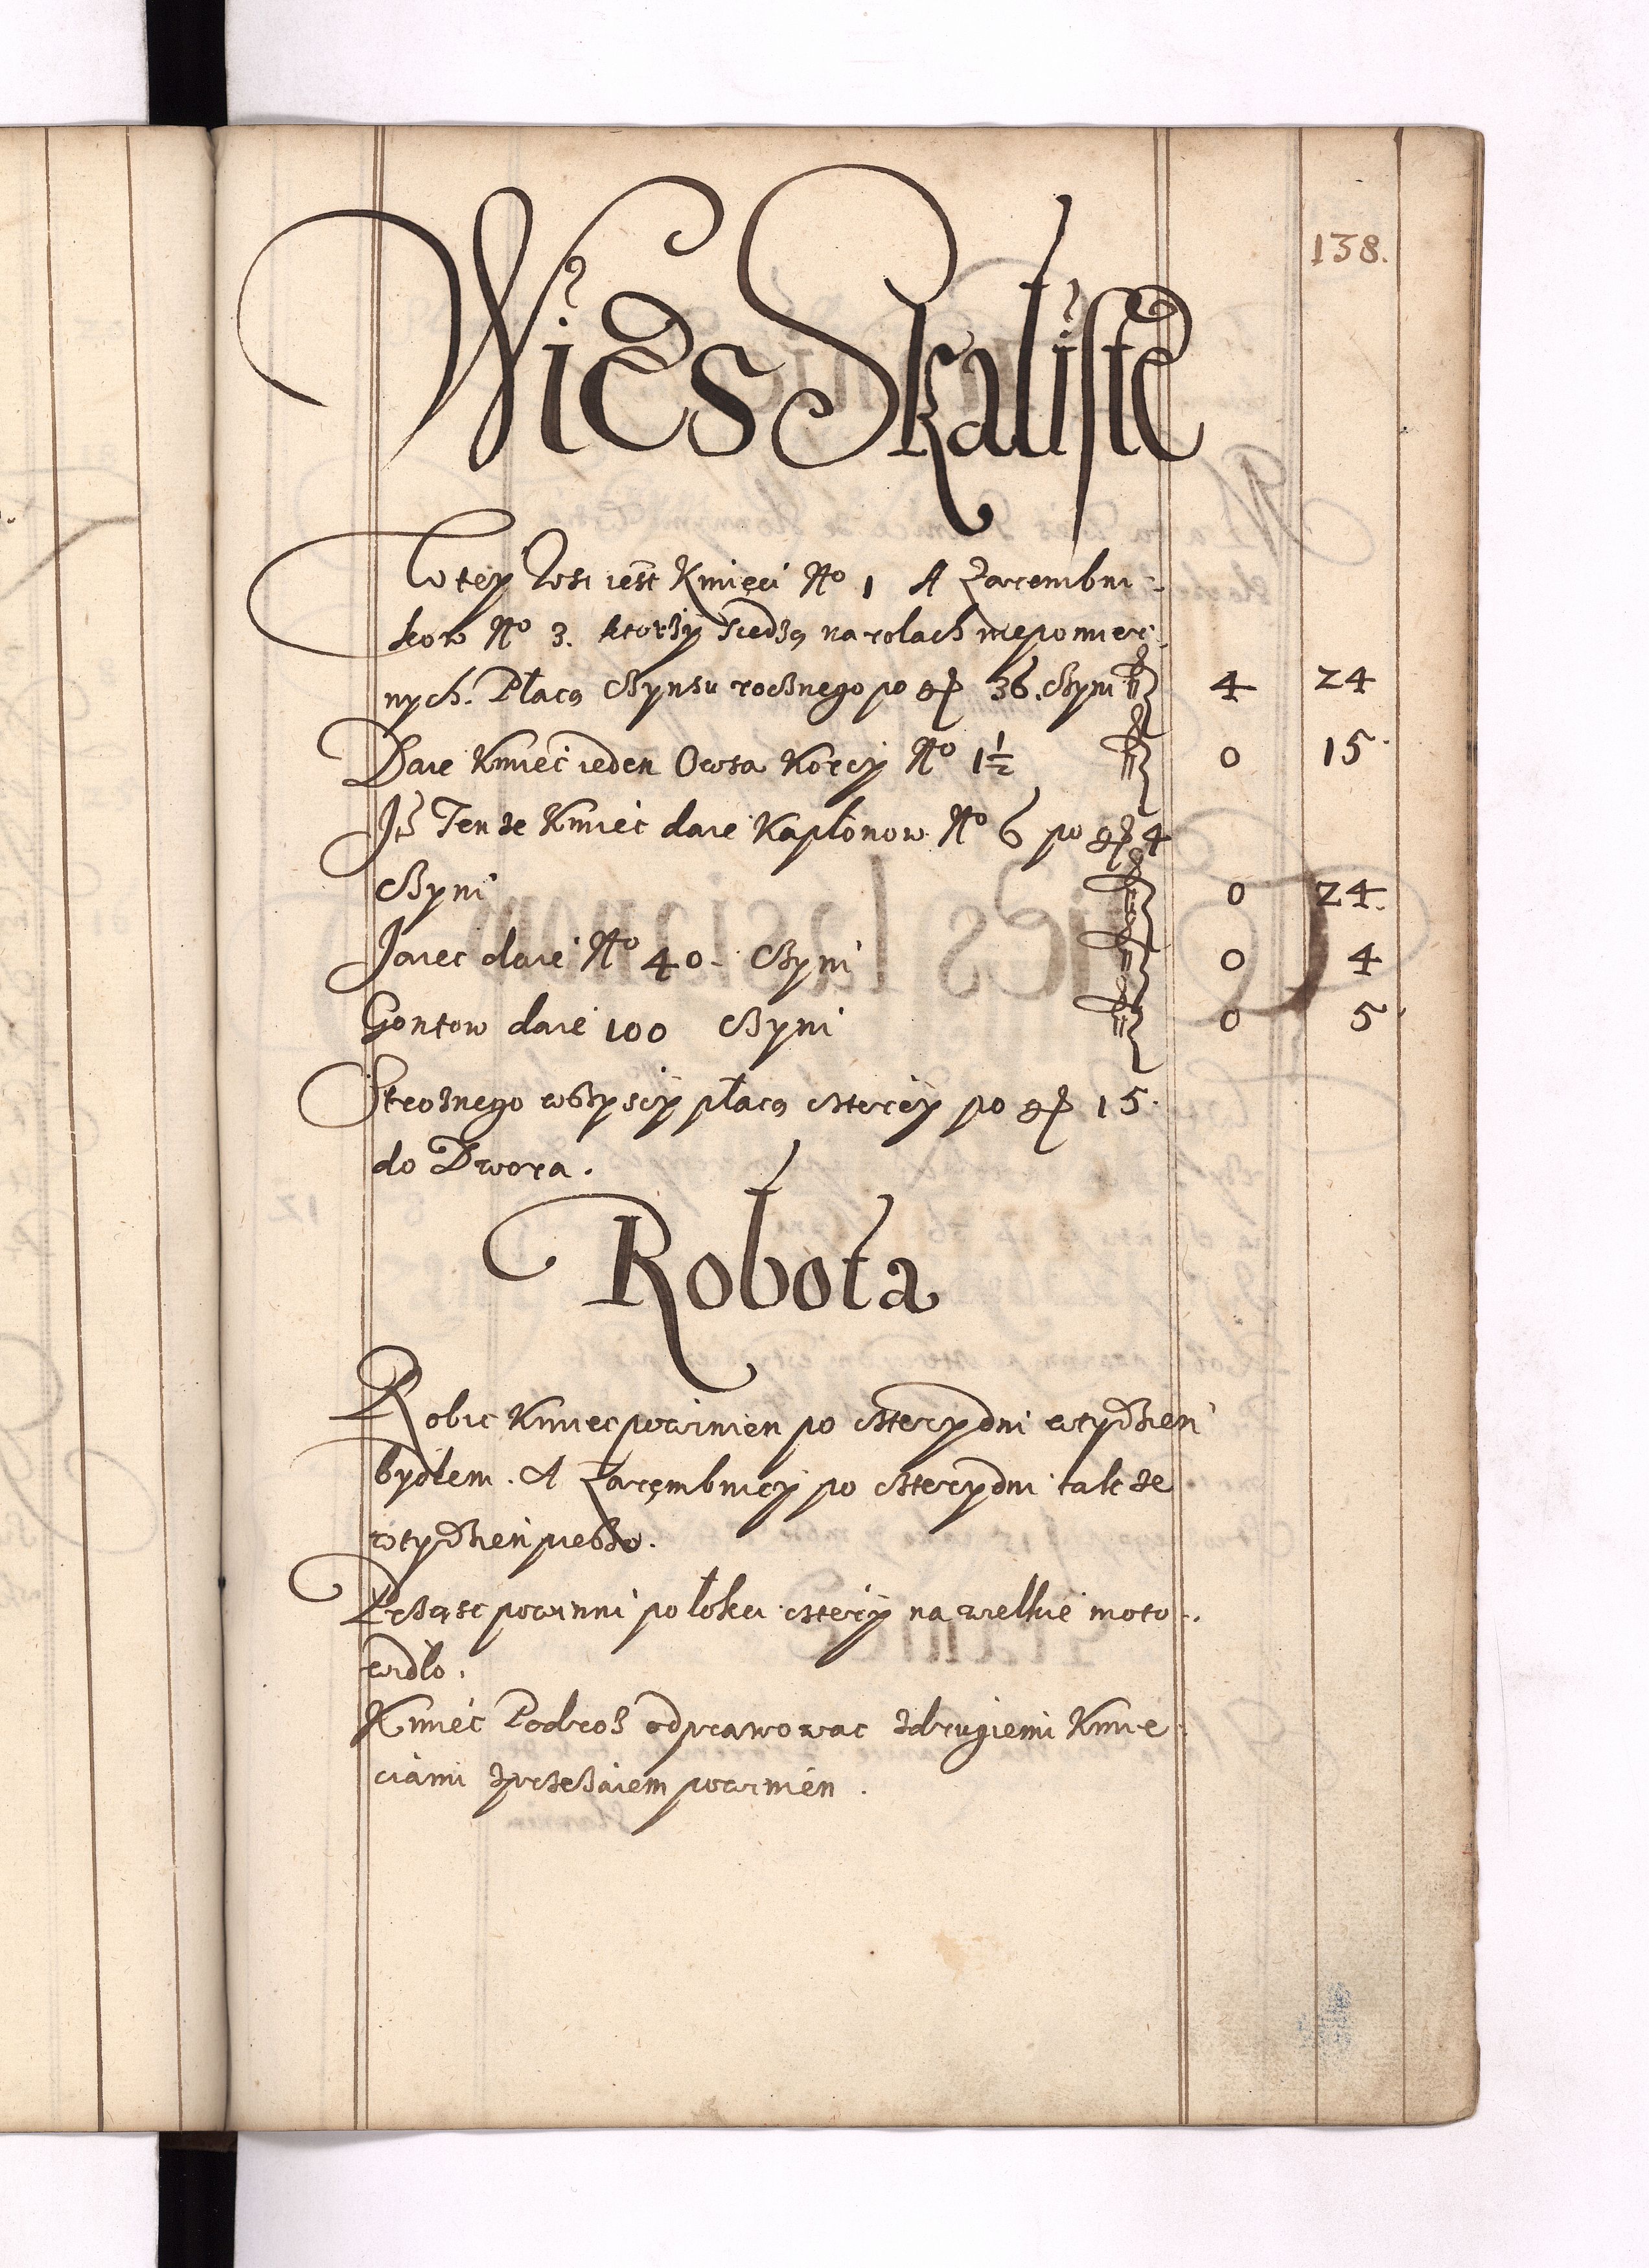 138.
Wies Skaliste
W tey Wsi iest Kmieci No 1 A Zarembni-
kow No 3. ktorzy siedzą na rolach niepomier-
nych. Płacą Czynszu rocznego po gr 36. Czyni fl 4 24
Daie Kmieć ieden Owsa Korcy No 1½ fl 0 15
Itē Tenze Kmieć daie Kapłonow No 6 po gr 4
Czyni fl 0 24.
Jaiec daie No 40. Czyni fl 0 4
Gontow daie 100 Czyni fl 0 5
Stroznego wszyscy płacą czterey po gr 15.
do Dwora.
Robota
Robic Kmiec powinien po cztery dni w tydzien
bydłem. A Zarembnicy po cztery dni takze
w tydzien pieszo.
Prząsc powinni po łokci cztery na wielkie moto-
widło.
Kmiéc Podroz odprawowac z drugiemi Kmie-
ciami z przestaiem powinien.